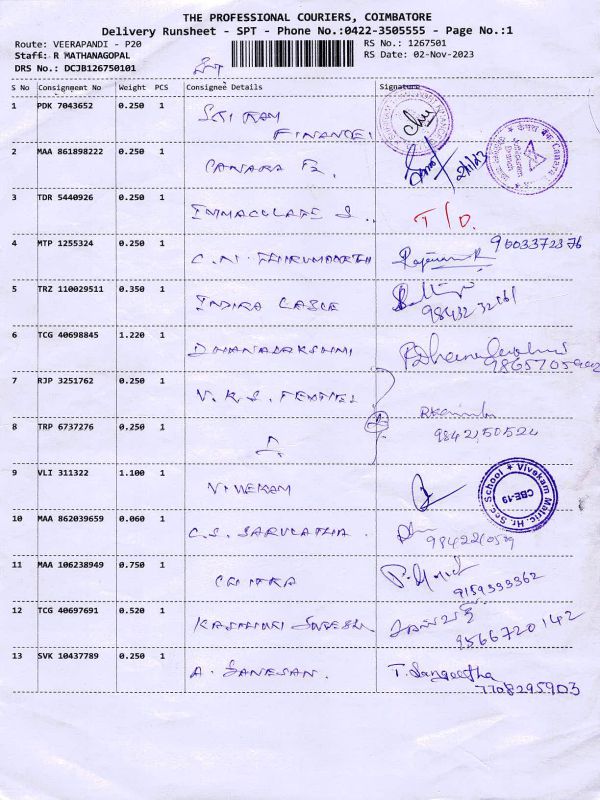 THE PROFESSIONAL COURIERS, COIMBATORE
Delivery Runsheet - SPT - Phone No.:0422-3505555 - Page No.:1
Route: VEERAPANDI - P20
RS No.: 1267501
Staff: R MATHANAGOPAL
RS Date: 02-Nov-2023
DRS No.: DCJB126750101
S No Consignment No Weight PCS Consignee Details Signature
1 PDK 7043652 0.250 1 SRI RAM
FINANCE
2 MAA 861898222 0.250 1 CANARA
3 TDR 5440926 0.250 1 IMMACULATE S. T/O.
4 MTP 1255324 0.250 1 C.N. 9603372376
5 TRZ 110029511 0.350 1 INDIRA CABLE
6 TCG 40698845 1.220 1 DHANALAKSHMI
7 RJP 3251762 0.250 1 V.K.S.
8 TRP 6737276 0.250 1
9 VLI 311322 1.100 1 VIVEKAM
Vivekam Matric. Hr. Sec. School
CBE-19
10 MAA 862039659 0.060 1 C.S. SARULATHA.
11 MAA 106238949 0.750 1 CHITRA
9159333362
12 TCG 40697691 0.520 1
9566720142
13 SVK 10437789 0.250 1 A. GANESAN. T. Sangeetha
7708295903